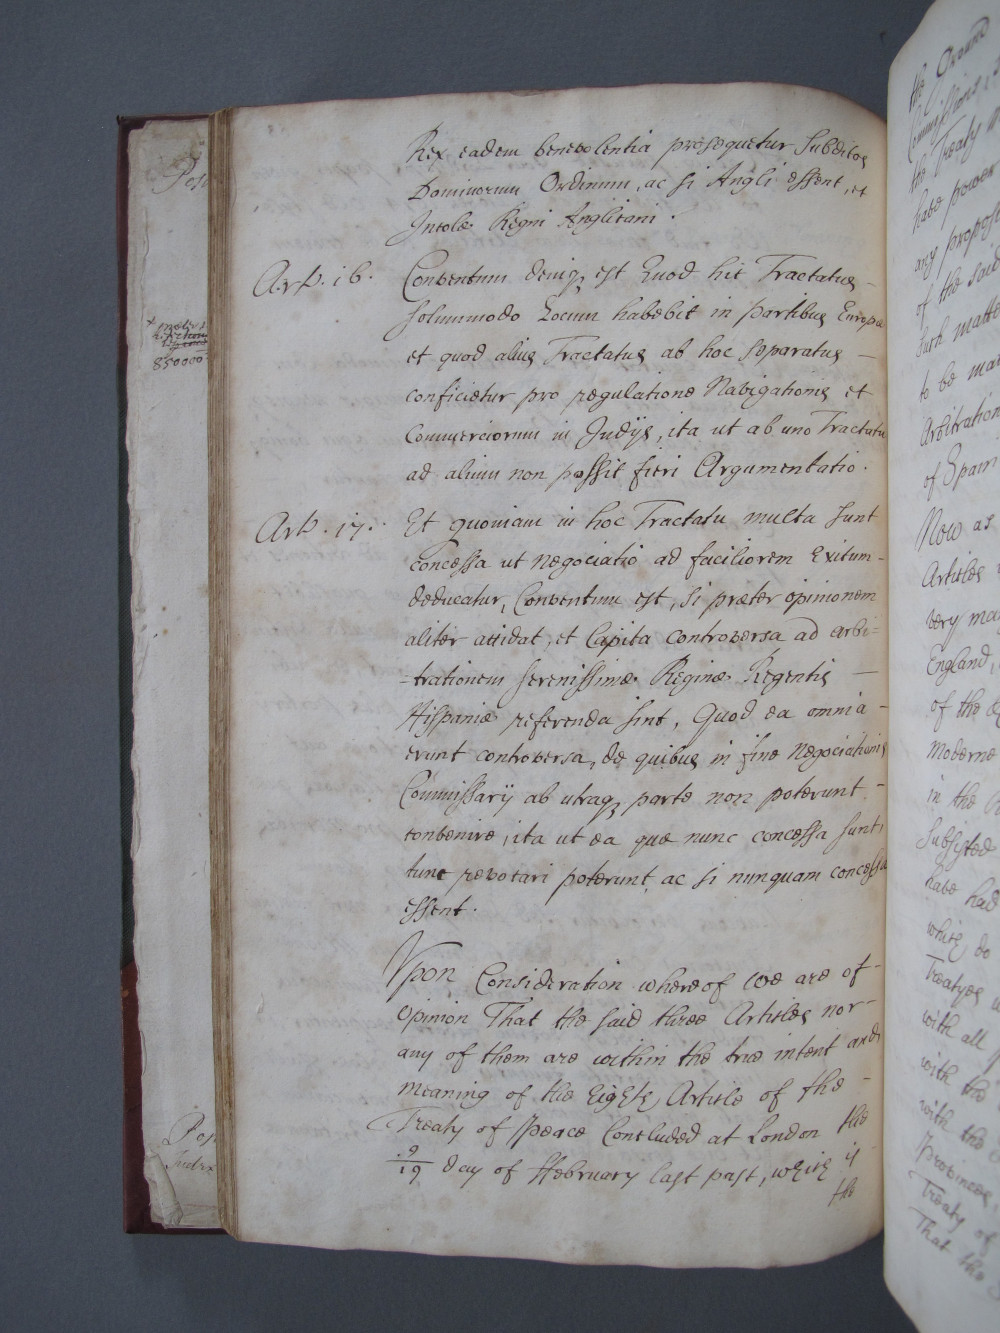 Rex eadem benevolentia prosequetur Subditos
Dominorum Ordinum, ac si Angli essent, et
Incolæ Regni Anglicani.
Art. 16. Conventum deniq, est Quod hic Tractatus -
solummodo Locum habebit in partibus Europæ
et quod alius Tractatus ab hoc separatus —
conficietur pro regulatione Navigationis et
Commerciorum in Indijs, ita ut ab uno Tractatu
ad alium non possit fieri Argumentatio.
Art. 17. Et quoniam in hoc Tractatu multa sunt
concessa ut Negociatio ad faciliorem Exitum -
deducatur, Conventum est, si præter opinionem
aliter accidat, et Capita controversa ad arbi=
=trationem serenissimæ Reginæ Regentis —
Hispaniæ referenda sint, Quod ea omnia -
erunt controversa, de quibus in fine Negociationis
Commissarij ab utraq, parte non poterunt -
convenire, ita ut ea quæ nunc concessa sunt,
tunc revocari poterunt ac si nunquam concessa
essent.
Vpon Consideration whereof we are of -
Opinion That the said three Articles nor -
any of them are within the true intent and
meaning of the Eighth Article of the -
Treaty of Peace Concluded at London the
9/19 day of ffebruary last past, which is
the
850000
the Ground
Commissions
the Treaty
have power
any propos
of the said
such matte
to be ma
Arbitration
of Spain
Now as
Articles
very ma
England,
of the
Moderne
in the
Subsisted
have had
which do
Treatyes
with all
with the
with the
Provinces
Treaty of
That the